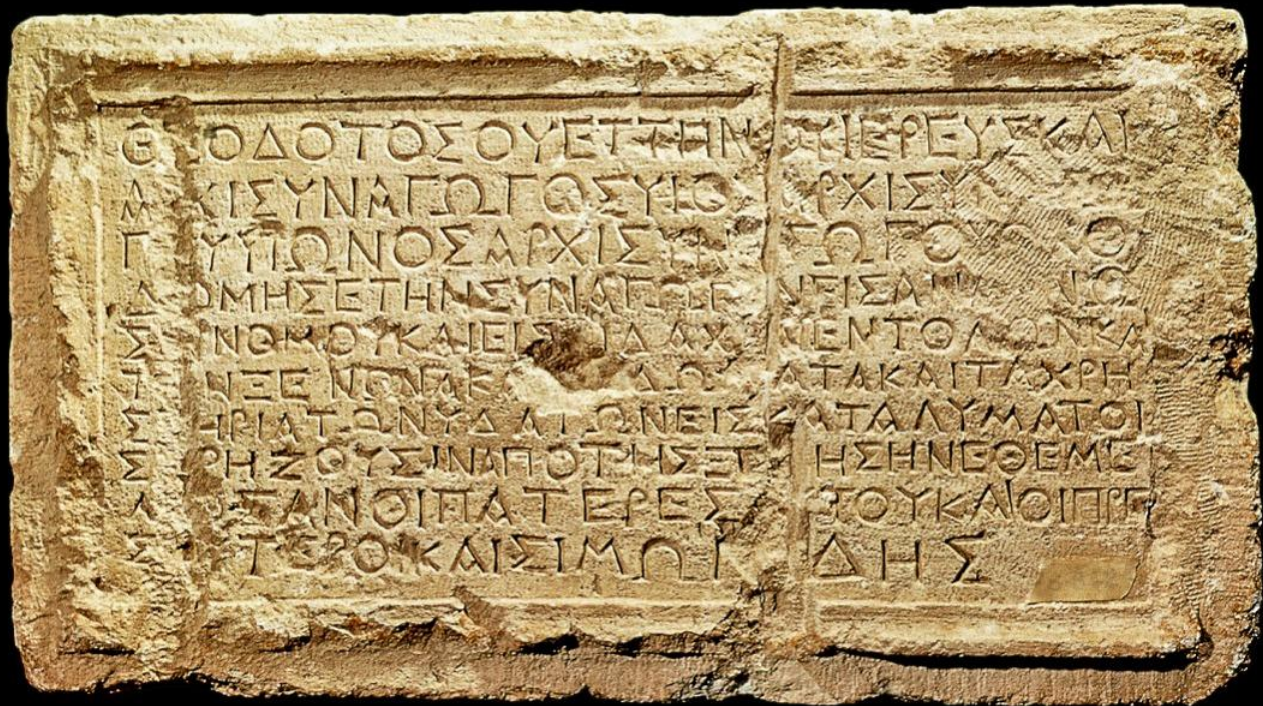 Θ ΟΔΟΤΟΣΟΥΕΤΤΗΝ ΥΙΕΡΕΥΣΚΑΙ
Α ΧΙΣΥΝΑΓΩΓΟΣΥΙΟ ΑΡΧΙΣΥ
Γ ΥΥΙΩΝΟΣΑΡΧΙΣΥΝ ΓΩΓΟΥ ΚΟ
Δ ΟΜΗΣΕΤΗΝΣΥΝΑΓΩΓ ΝΕΙΣΑΝ ΝΩ
Σ ΝΝΟΜΟΥΚΑΙΕΙΣ ΙΔΑΧ ΝΕΝΤΟΛΩΝΚΑ
ΝΞΕΝΩΝΑΚΑ ΔΩ ΑΤΑΚΑΙΤΑΧΡΗ
Σ ΗΡΙΑΤΩΝΥΔΑΤΩΝΕΙΣΚΑΤΑΛΥΜΑΤΟΙ
Σ ΡΗΖΟΥΣΙΝΑΠΟΤΗΣΞΕ ΗΣΗΝΕΘΕΜΕ
Λ ΣΑΝΟΙΠΑΤΕΡΕΣ ΤΟΥΚΑΙΟΙΠΡΕ
Σ ΥΤΕΡΟΙΚΑΙΣΙΜΩΝ ΔΗΣ